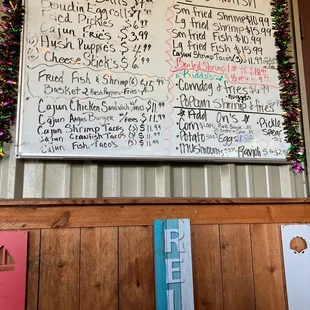 Boudin Eggrolls $
Fried Pickles $6
Cajun Frie's $3.99
Hush Puppie's $4.99
Cheese Stick's $
Fried Fish & Shrimp
Basket
Cajun Chicken Sandwich /fries $11.99
Cajun Angus Burger w/fries $11.99
Cajun Shrimp Tacos (3) $11.99
Cajun Crawfish Tacos (3) $11.99
Cajun Fish Tacos (3) $11.99
Sm Fried Shrimp $10.99
Lg Fried Shrimp $15.99
Sm Fried Fish $10.99
Lg Fried Fish $15.99
Cajun Shrimp Tacos
Boiled Shrimp
Kiddos
Corndog & fries
Popcorn Shrimp & fries
* Add On's
·Corn
·Potato ·Egg
·Mushrooms ·Ranch
·Pickle
Spear
REL